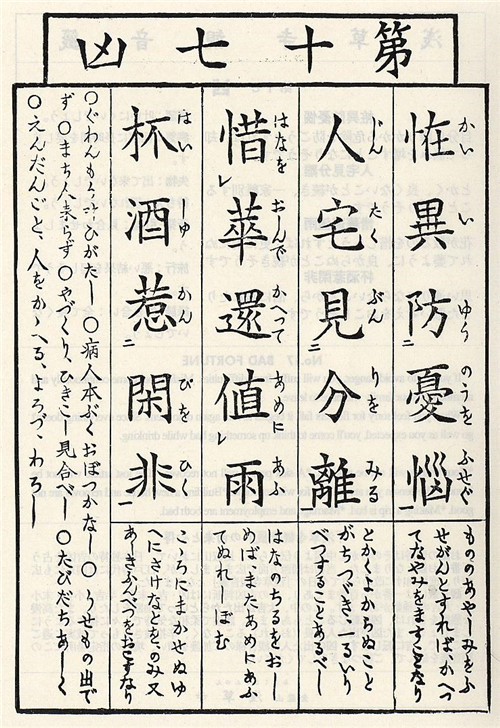 第十七凶
恠異防憂惱
かいいゆうのうをふせぐ
人宅見分離
じんたくぶんりをみる
惜華還値雨
はなをおしんでかへつてあめにあふ
杯酒惹閑非
はいしゆかんぴをひく
もののあやしみをふ
せがんとすればかへつ
てなやみをますことなり
とかくよからぬこと
がちつづき、一るいり
べつすることあるべし
はなのちるをおし
めばまたあめにあふ
てぬれしぼむ
こころにまかせぬゆ
へにさけなどのみ又
あしきふんべつをおこすなり
○ぐわんもうとゝのひがたし○病人本ぶくおぼつかなし○うせもの出で
ず○まち人来らず○やづくり、ひきこし見合べし○たびだちあしく
○えんだんごと、人をかゝへる、よろづ、わろし